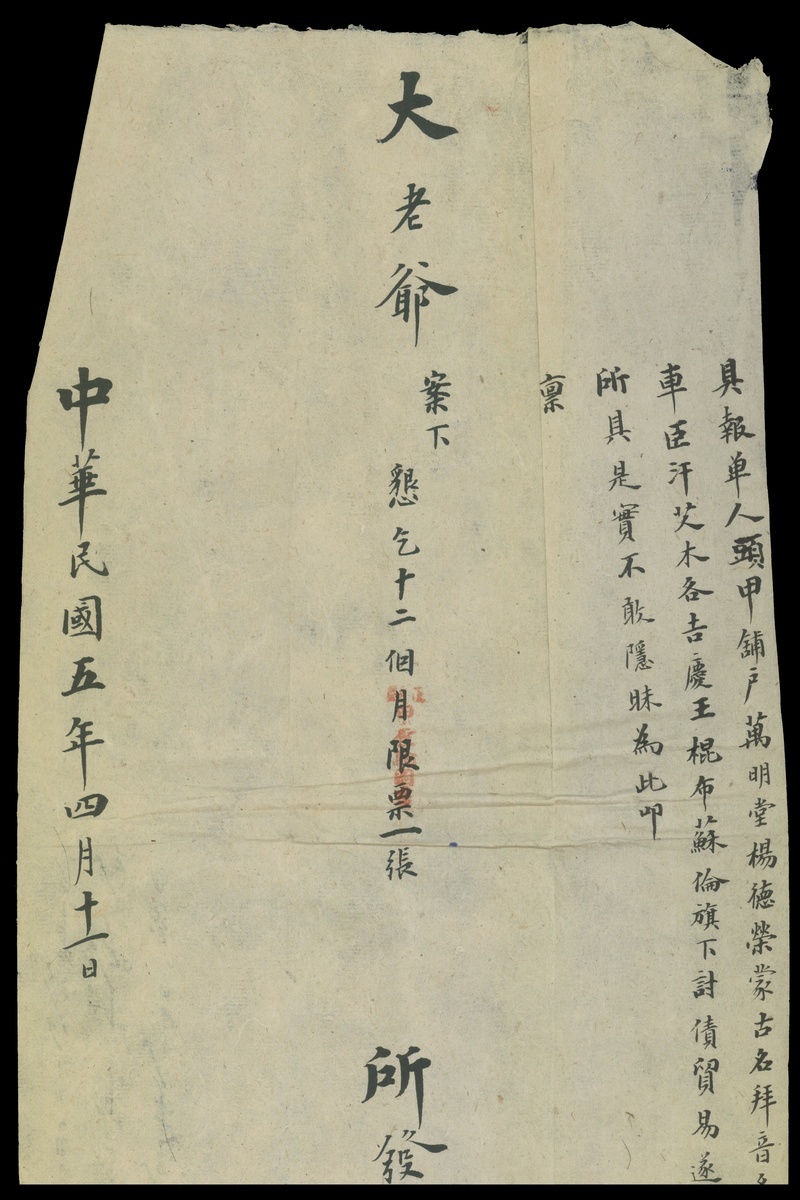 具報单人頭甲舖户萬明堂楊德榮蒙古名拜音
車臣汗艾木各吉慶王棍布蘇倫旗下討債貿易遂
所具是實不敢隱昧為此叩
禀
大老爺案下
懇乞十二個月限票一張
所發
中華民國五年四月十一日